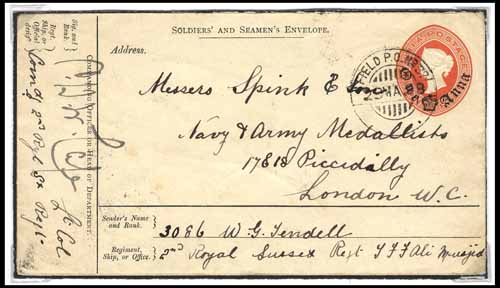 SOLDIERS' AND SEAMEN'S ENVELOPE.
Address.
Messers Spink &
Navy & Army Medallists
17 & 18 Piccadilly
London W.C.
FIELD P.O. No.
INDIA POSTAGE
Anna
Sender's Name and Rank.
3086 W. G. Tendell
Regiment, Ship, or Office.
2nd Royal Sussex Regt T F F Ali Musjid
Sig. and Rank.
Lt Col
Regt. Ship, or Official desigtn.
Comdg 2nd Regt
COMMANDING OFFICER OR HEAD OF DEPARTMENT.